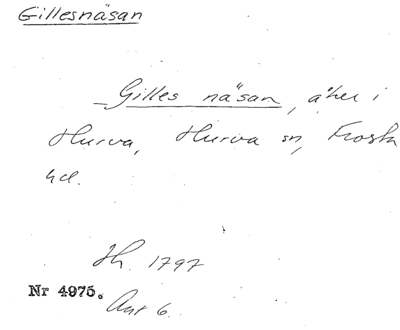 Gillesnäsan
Gilles näsan, åker i
Hurva, Hurva sn, Frosta
hd.
Hh. 1797
Nr 4975.
Akt 6.